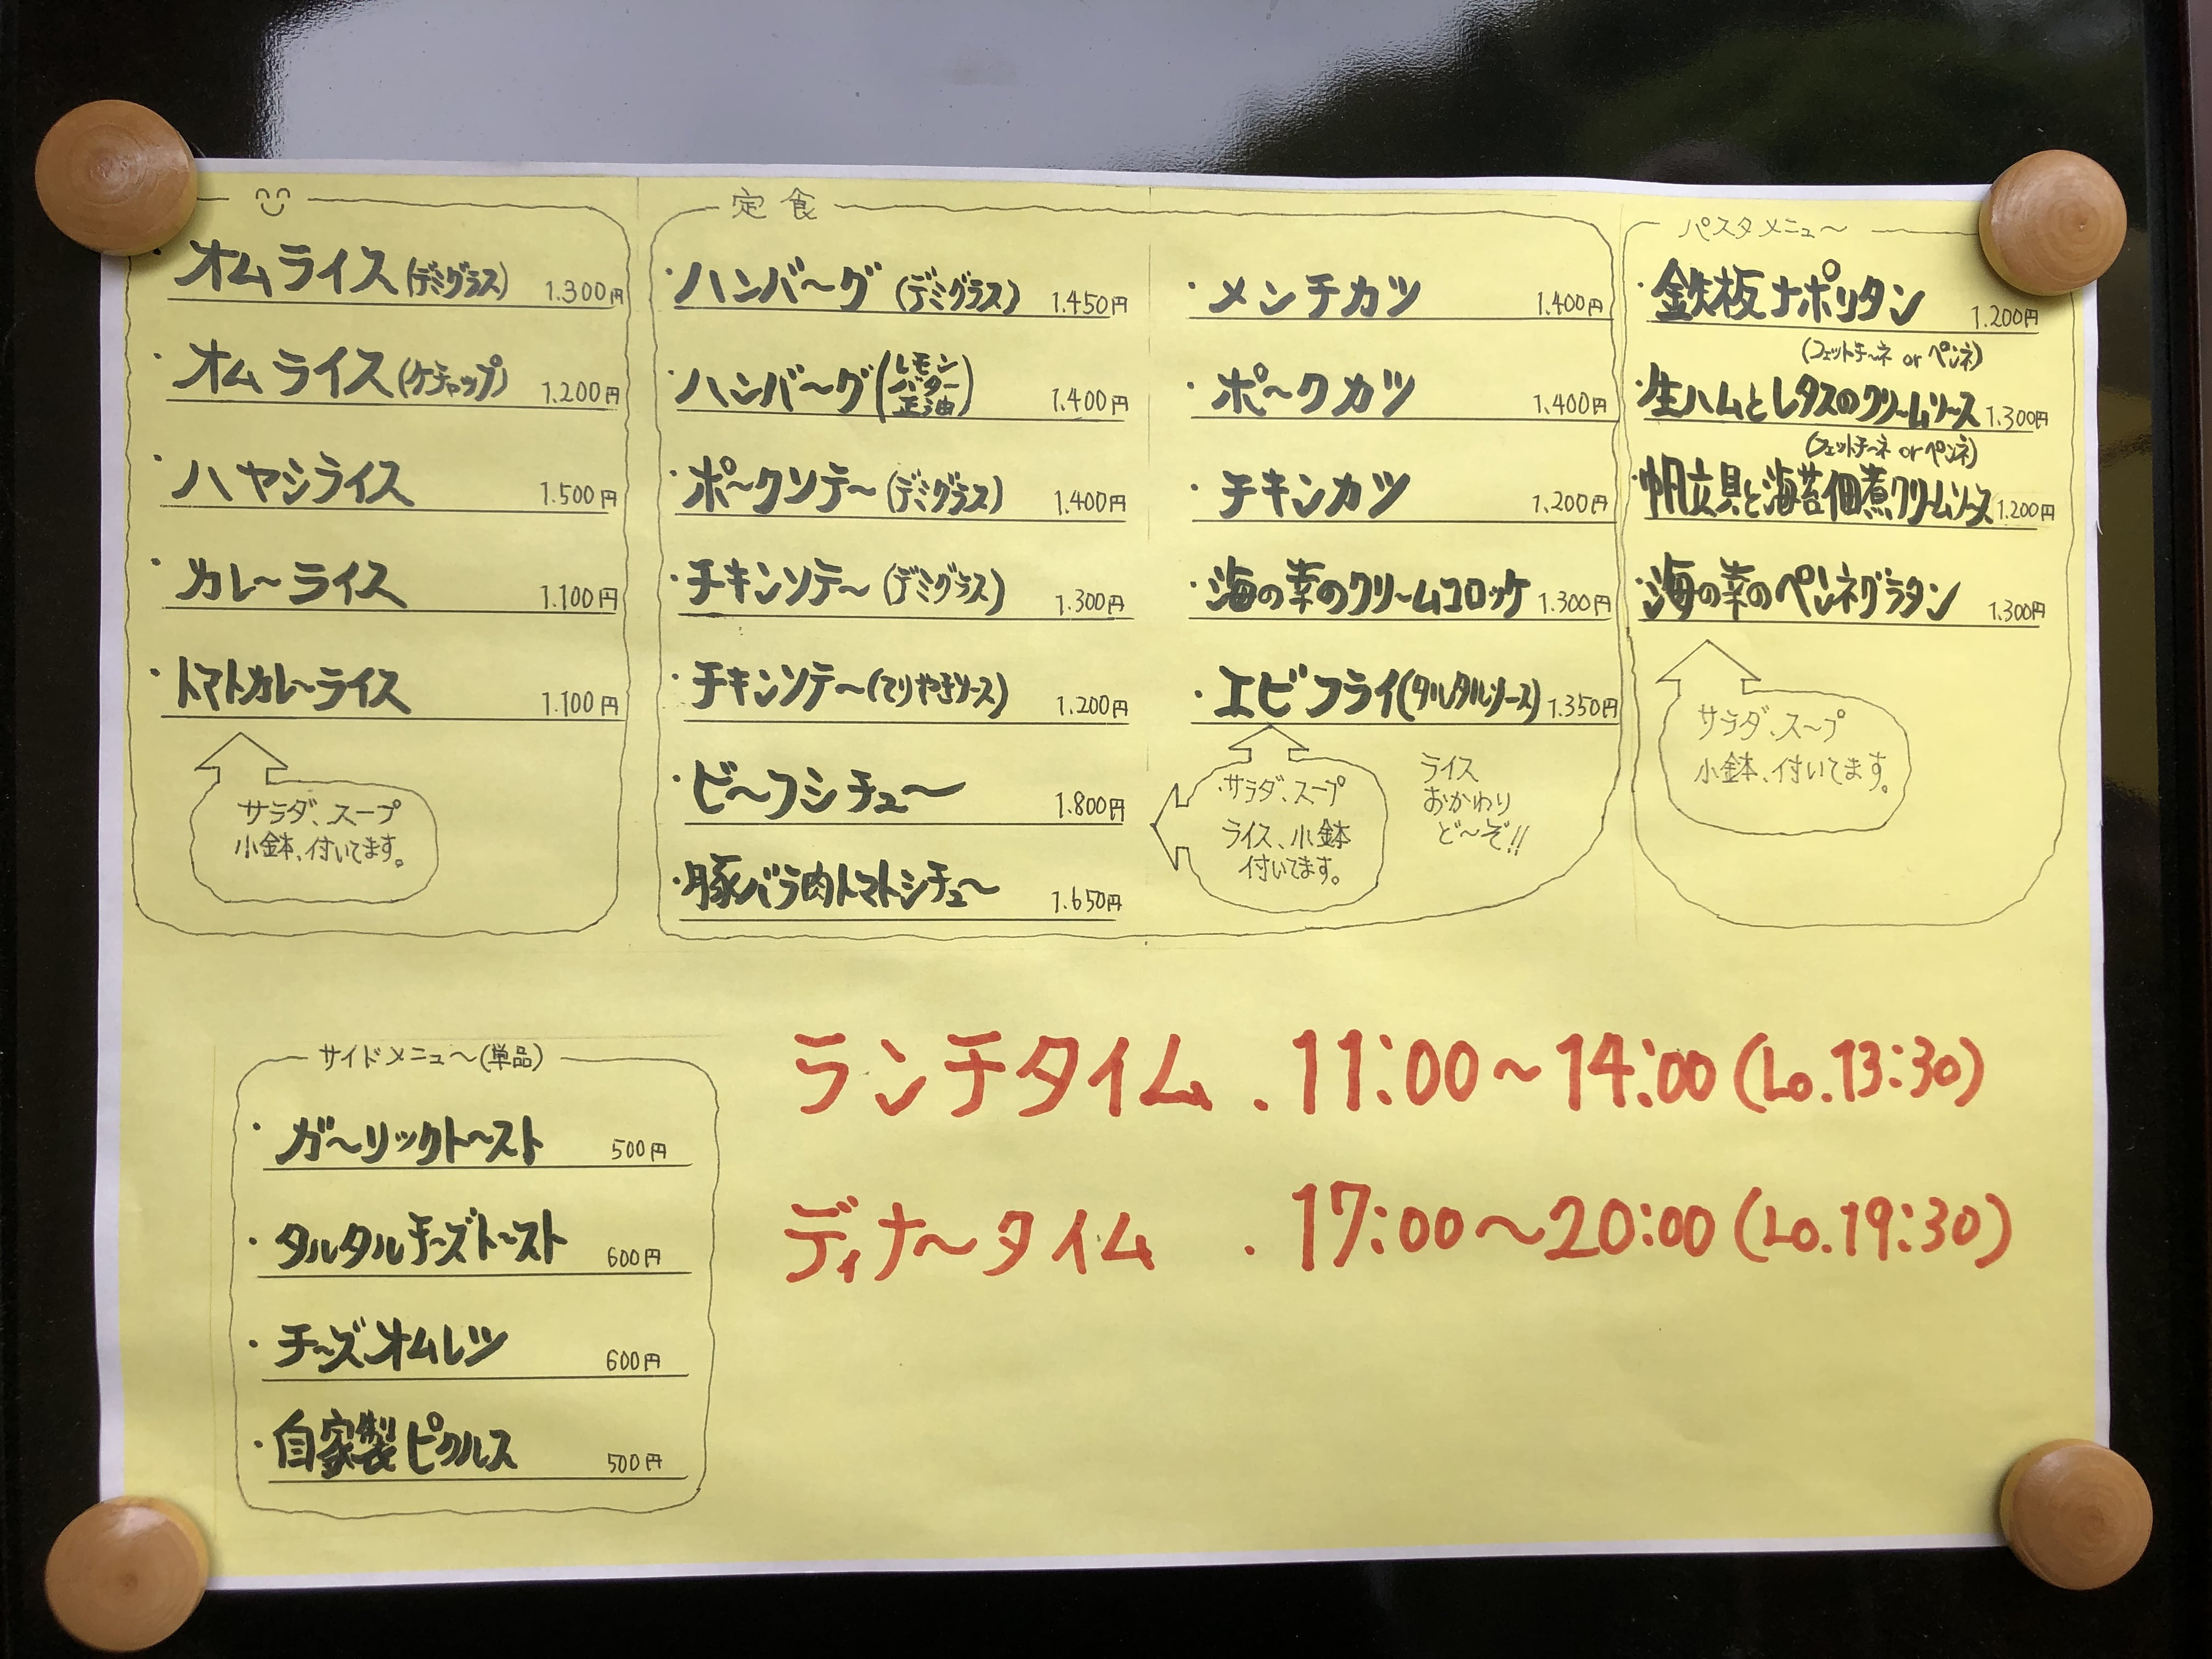 オムライス(デミグラス) 1.300円
オムライス(ケチャップ) 1.200円
ハヤシライス 1.500円
カレ〜ライス 1.100円
トマトカレ〜ライス 1.100円
サラダ、スープ
小鉢、付いてます。
定食
ハンバ〜グ(デミグラス) 1.450円
ハンバ〜グ(レモンバター正油) 1.400円
ポ〜クソテ〜(デミグラス) 1.400円
チキンソテ〜(デミグラス) 1.300円
チキンソテ〜(てりやきソース) 1.200円
ビ〜フシチュ〜 1.800円
豚バラ肉トマトシチュ〜 1.650円
メンチカツ 1.400円
ポ〜クカツ 1.400円
チキンカツ 1.200円
海の幸のクリ〜ムコロッケ 1.300円
エビフライ(タルタルソース) 1.350円
サラダ、スープ
ライス、小鉢
付いてます。
ライス
おかわり
ど〜ぞ!!
パスタメニュ〜
鉄板ナポリタン 1.200円
(フェットチ〜ネ or ペンネ)
生ハムとレタスのクリ〜ムソース 1.300円
(フェットチ〜ネ or ペンネ)
帆立貝と海苔佃煮クリ〜ムソ〜ス 1.200円
海の幸のペンネグラタン 1.300円
サラダ、ス〜プ
小鉢、付いてます。
サイドメニュ〜(単品)
ガ〜リックト〜スト 500円
タルタルチ〜ズト〜スト 600円
チ〜ズオムレツ 600円
自家製ピクルス 500円
ランチタイム . 11:00〜14:00 (Lo.13:30)
ディナ〜タイム . 17:00〜20:00 (Lo.19:30)